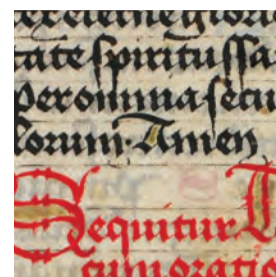 tate spiritus sa
per omnia secu
lorum. Amen
Sequitur
cum oratio